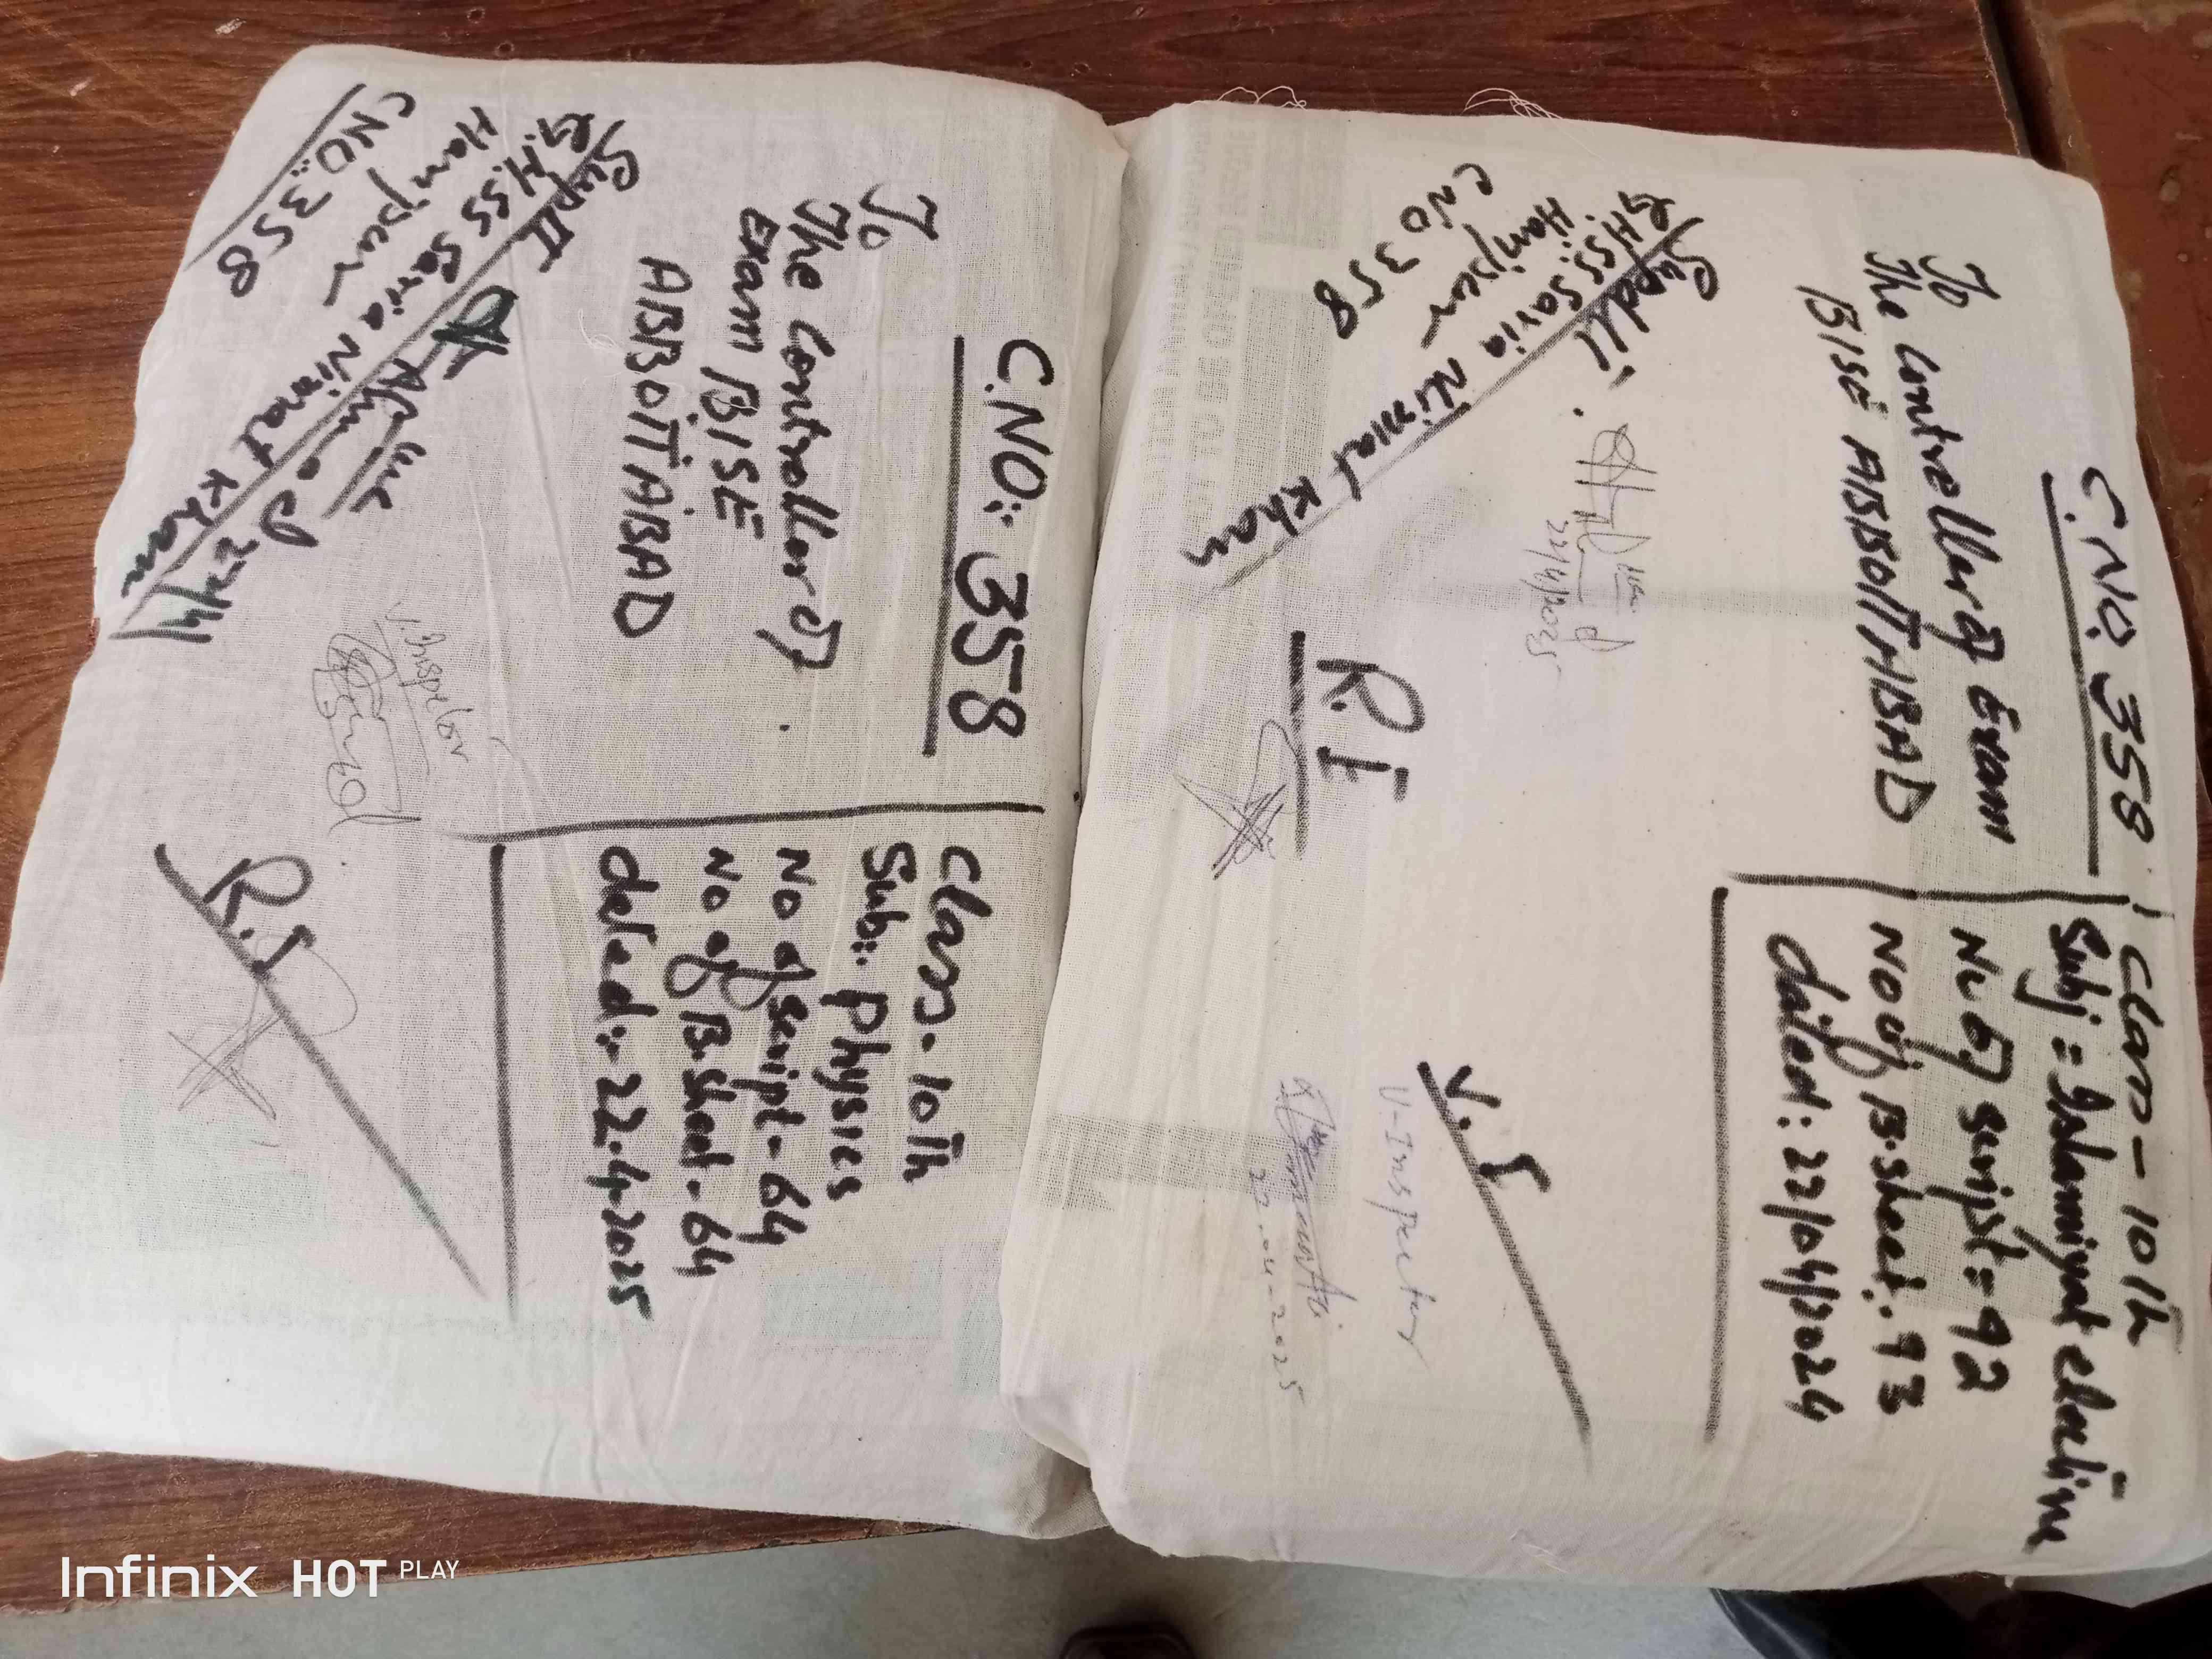 C.NO. 358
To
The Controller of Exam
BISE ABBOTTABAD
Class - 10th
Subj = Islamiyat elective
No of script = 92
No of B.sheet: 93
daited: 22/04/2024
Supdtt
G.H.S.S Savia Nimat Khan
Haripur
CNO 358
22/4/2025
R.I
V.I
V-Inspector
22-04-2025
C.NO: 3558
To
The Controller of
EXam B.I SE
ABBOTTABAD
Class - 10th
Sub: Physics
No of script - 64
No of B.Sheet - 64
dated: 22.4.2025
Supdtt
G.H.SS Savia Nimat Khan
Haripur
CNO: 358
V.Inspector
R.I
Infinix HOT PLAY